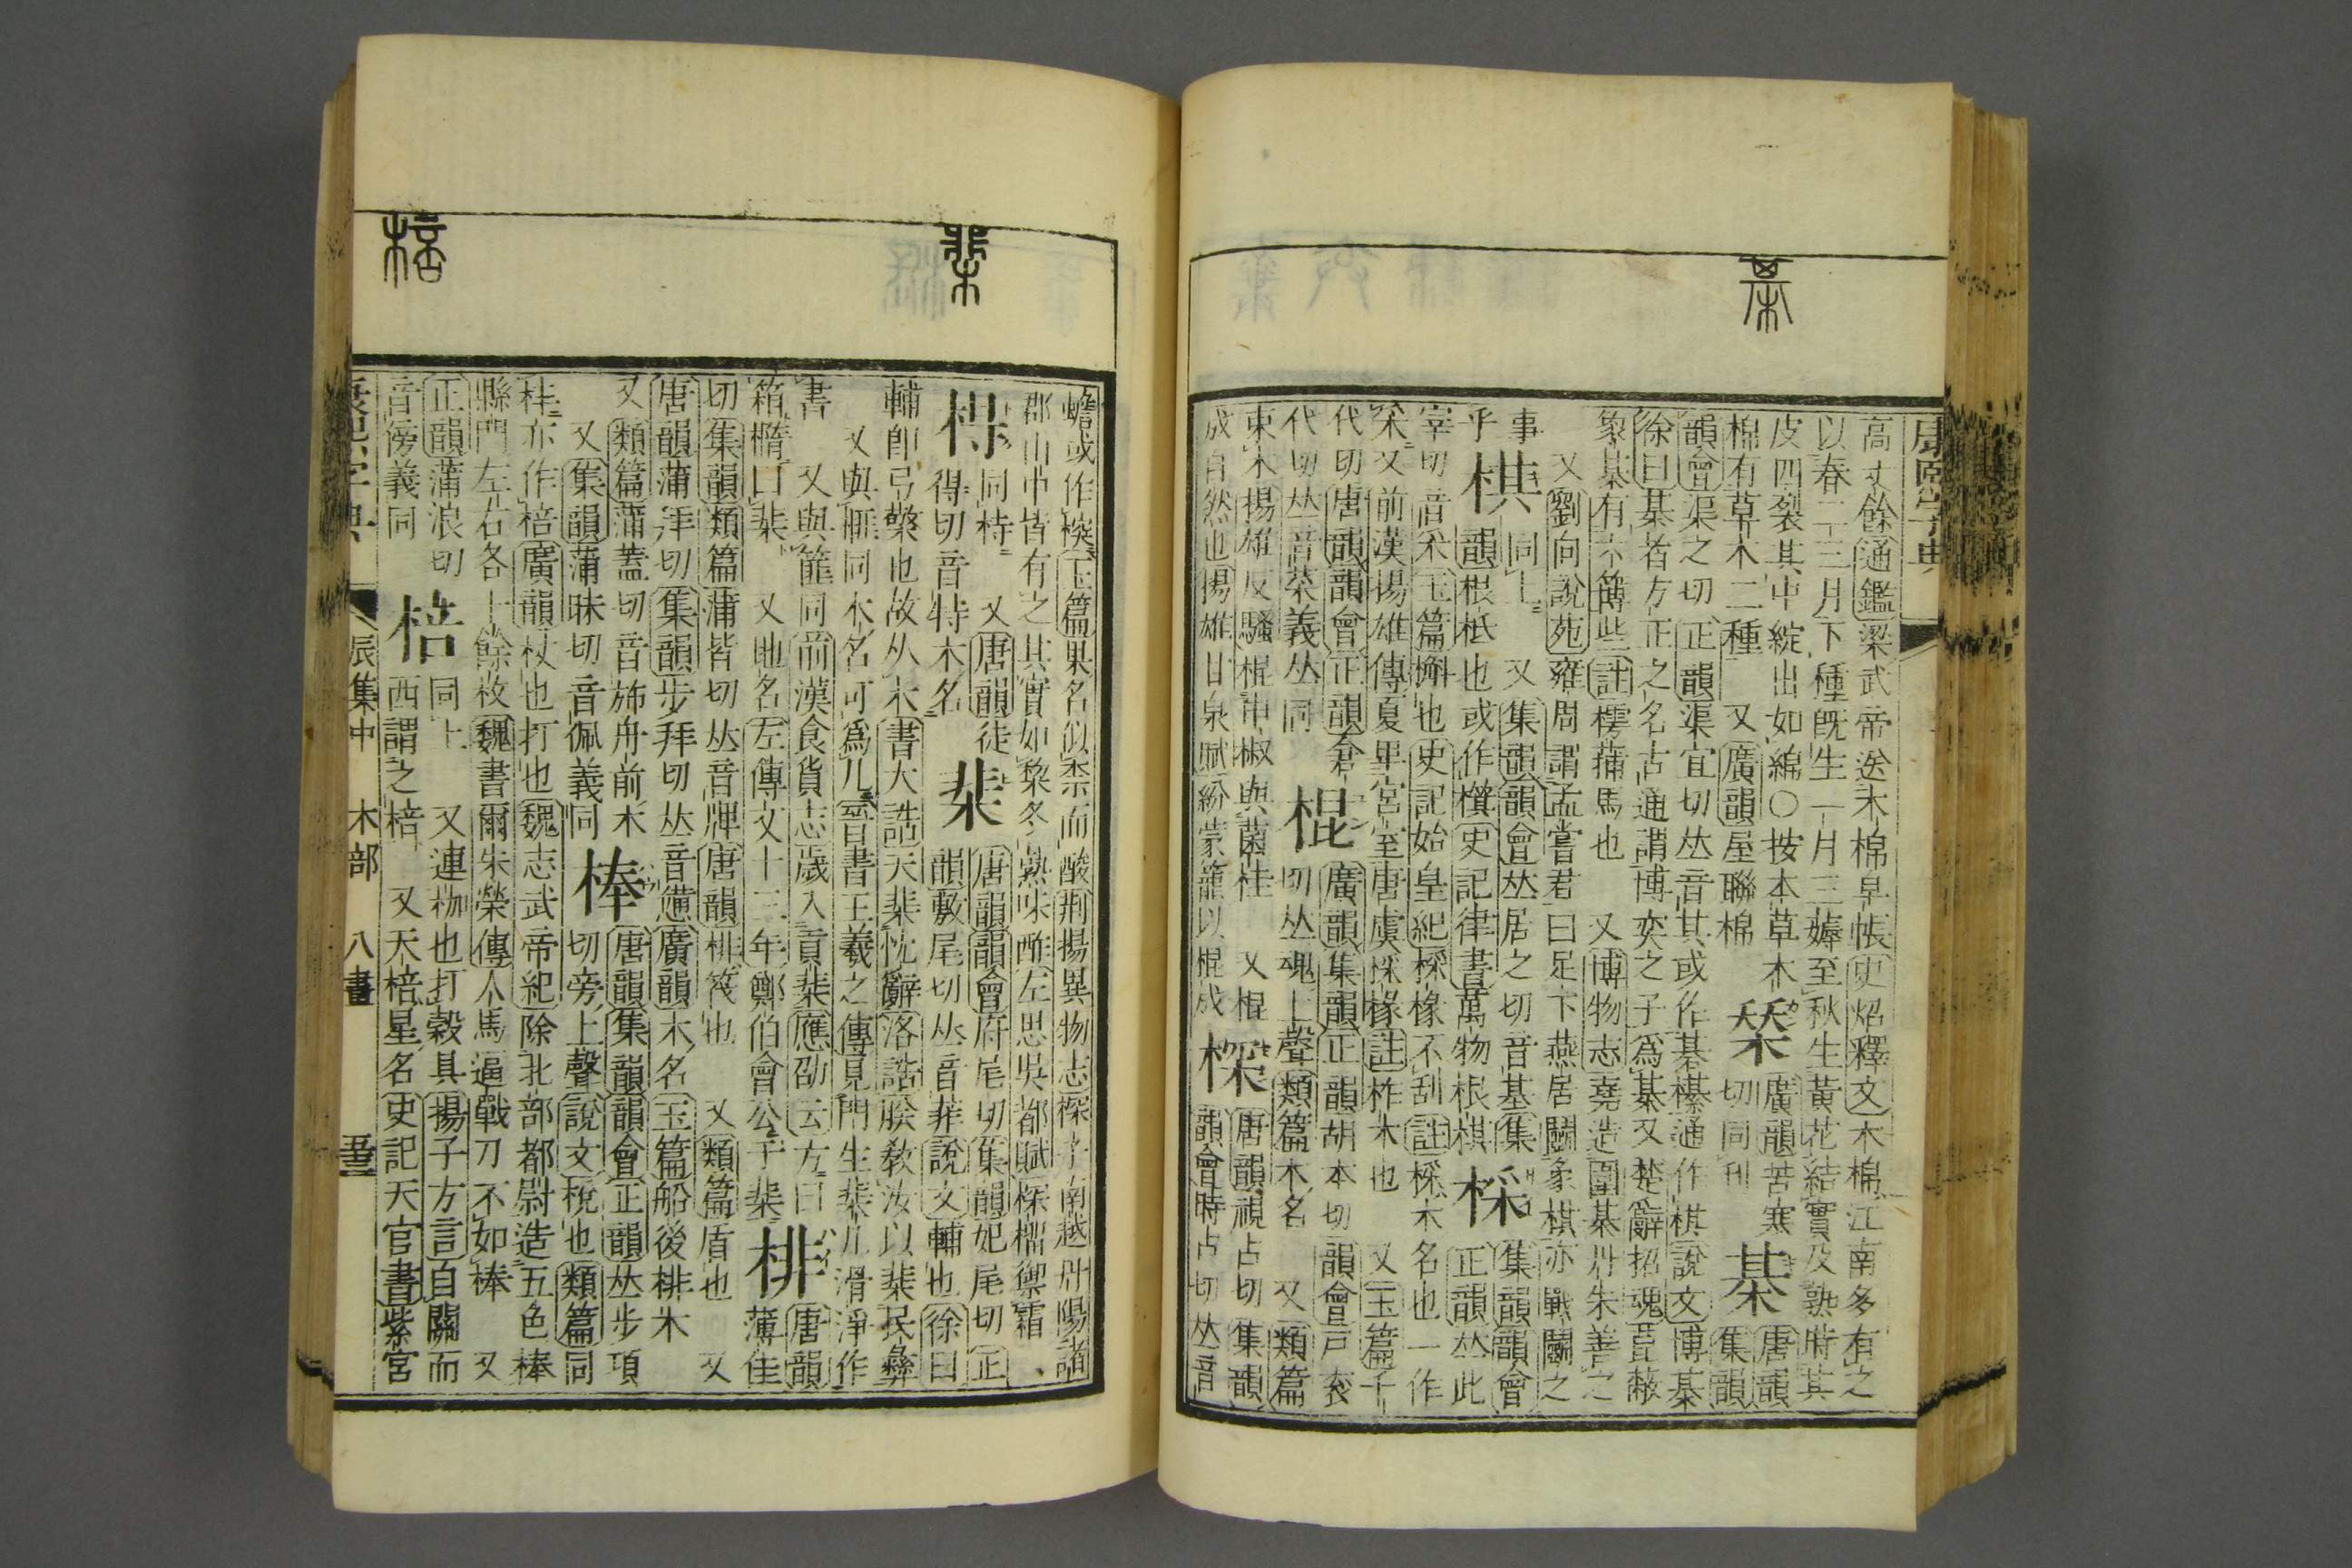 康熙字典
高丈餘通鑑梁武帝送木棉皁帳史炤釋文木棉江南多有之
以春二三月下種旣生一月三薅至秋生黃花結實及熟時其
皮四裂其中綻出如綿○按本草木 廣韻苦寒 棊 唐韻
棉有草木二種 又廣韻屋聯棉 切同刊 集韻
韻會渠之切正韻渠宜切𠀤音其或作碁櫀通作棋說文博棊
徐曰棊者方正之名古通謂博奕之子爲棊又楚辭招魂菎蔽
象棊有六簙些註樗蒱馬也 又博物志堯造圍棊丹朱善之
又劉向說苑雍周謂孟嘗君曰足下燕居鬭象棋亦戰鬭之
事 棋 同上 又集韻韻會𠀤居之切音基集 棌 集韻韻會
乎 韻根柢也或作櫀史記律書萬物根棋 正韻𠀤此
宰切音采玉篇槲也史記始皇紀棌椽不刮註棌木名也一作
采又前漢揚雄傳夏𤰞宮室唐虞棌椽註柞木也 又玉篇千
代切唐韻韻會正韻倉 棍 廣韻集韻正韻胡本切韻會戸袞
代切𠀤音菜義𠀤同 切𠀤魂上聲類篇木名 又類篇
束木揚雄反騷棍申椒與菌桂 又棍 棎 唐韻視占切集韻
成自然也揚雄甘泉賦紛蒙籠以棍成 韻會時占切𠀤音
蟾或作㮑玉篇果名似柰而酸荆揚異物志棎子南越丹陽諸
郡山中皆有之其實如棃冬熟味酢左思吳都賦棎榴禦霜
棏 同㭙 又唐韻徒 棐 唐韻韻會府尾切集韻妃尾切正
得切音特木名 韻敷尾切𠀤音菲說文輔也徐曰
輔卽弓檠也故从木書大誥天棐忱辭洛誥朕敎汝以棐民彝
又與榧同木名可爲几晉書王羲之傳見門生棐几滑淨作
書 又與篚同前漢食貨志歲入貢棐應劭云方曰 棑 唐韻
箱橢曰棐 又地名左傳文十三年鄭伯會公于棐 薄佳
切集韻類篇蒲皆切𠀤音牌唐韻棑筏也 又類篇盾也 又
唐韻蒲拜切集韻步拜切𠀤音憊廣韻木名玉篇船後棑木
又類篇蒲蓋切音斾舟前木 棒 唐韻集韻韻會正韻𠀤步項
又集韻蒲昧切音佩義同 切旁上聲說文梲也類篇同
柈亦作棓廣韻杖也打也魏志武帝紀除北部都尉造五色棒
縣門左右各十餘枚魏書爾朱榮傳人馬逼戰刀不如棒 又
正韻蒲浪切 棓 同上 又連枷也打穀具揚子方言自關而
音傍義同 西謂之棓 又天棓星名史記天官書紫宮
康熙字典 辰集中 木部 八畫